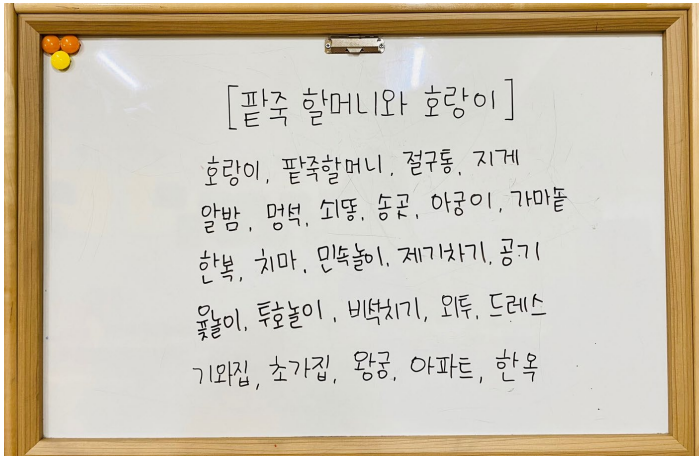 [팥죽 할머니와 호랑이]
호랑이, 팥죽할머니, 절구통, 지게
알밤, 멍석, 쇠똥, 송곳, 아궁이, 가마솥
한복, 치마, 민속놀이, 제기차기, 공기
윷놀이, 투호놀이, 비석치기, 외투, 드레스
기와집, 초가집, 왕궁, 아파트, 한옥